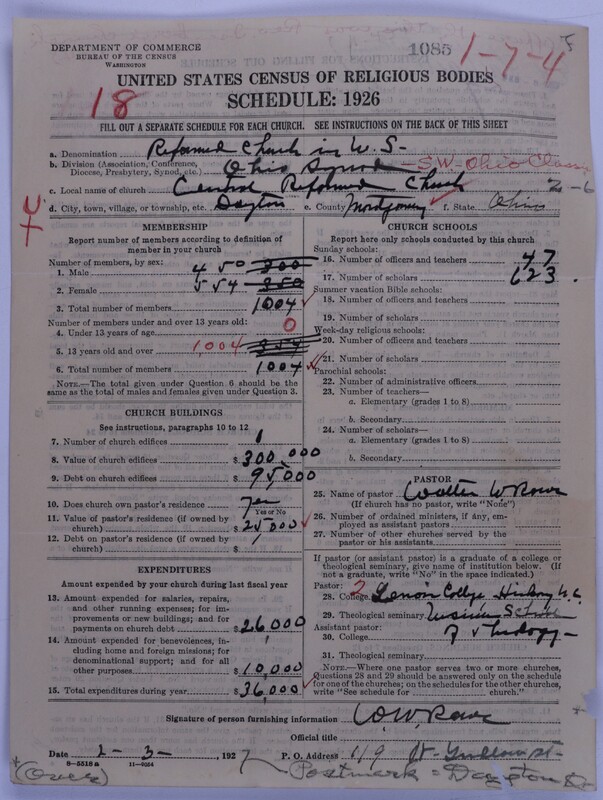 DEPARTMENT OF COMMERCE
BUREAU OF THE CENSUS
WASHINGTON
1085
1-7-4
UNITED STATES CENSUS OF RELIGIOUS BODIES
18
SCHEDULE: 1926
FILL OUT A SEPARATE SCHEDULE FOR EACH CHURCH. SEE INSTRUCTIONS ON THE BACK OF THIS SHEET
a. Denomination Reformed Church in U.S.
b. Division (Association, Conference, Diocese, Presbytery, Synod, etc.) Ohio Synod - S.W. Ohio Classis
c. Local name of church Central Reformed Church 2-6
d. City, town, village, or township, etc. Dayton e. County Montgomery f. State Ohio
MEMBERSHIP
Report number of members according to definition of member in your church
Number of members, by sex:
1. Male 450 300
2. Female 554 350
3. Total number of members 1004
Number of members under and over 13 years old:
4. Under 13 years of age 0
5. 13 years old and over 1,004
6. Total number of members 1004
NOTE.—The total given under Question 6 should be the same as the total of males and females given under Question 3.
CHURCH BUILDINGS
See instructions, paragraphs 10 to 12
7. Number of church edifices 1
8. Value of church edifices $ 300,000
9. Debt on church edifices $ 95,000
10. Does church own pastor's residence? Yes
Yes or No
11. Value of pastor's residence (if owned by church) $ 25,000
12. Debt on pastor's residence (if owned by church) $
EXPENDITURES
Amount expended by your church during last fiscal year
13. Amount expended for salaries, repairs, and other running expenses; for improvements or new buildings; and for payments on church debt $ 26,000
14. Amount expended for benevolences, including home and foreign missions; for denominational support; and for all other purposes $ 10,000
15. Total expenditures during year $ 36,000
CHURCH SCHOOLS
Report here only schools conducted by this church
Sunday schools:
16. Number of officers and teachers 47
17. Number of scholars 623
Summer vacation Bible schools:
18. Number of officers and teachers
19. Number of scholars
Week-day religious schools:
20. Number of officers and teachers
21. Number of scholars
Parochial schools:
22. Number of administrative officers
23. Number of teachers—
a. Elementary (grades 1 to 8)
b. Secondary
24. Number of scholars—
a. Elementary (grades 1 to 8)
b. Secondary
PASTOR
25. Name of pastor Walter W Rowe
(If church has no pastor, write "None")
26. Number of ordained ministers, if any, employed as assistant pastors
27. Number of other churches served by the pastor or his assistants
If pastor (or assistant pastor) is a graduate of a college or theological seminary, give name of institution below. (If not a graduate, write "No" in the space indicated.)
Pastor: 2
28. College Lenoir College - Hickory N.C.
29. Theological seminary Ursinus School
Assistant pastor: of Theology
30. College
31. Theological seminary
NOTE.—Where one pastor serves two or more churches, Questions 28 and 29 should be answered only on the schedule for one of the churches; on the schedules for the other churches, write "See schedule for church."
Signature of person furnishing information W.W. Rowe
Official title
Date 2-3-, 1927 P. O. Address 119
8-5518a 11-6554
(Over) Postmark = Dayton O